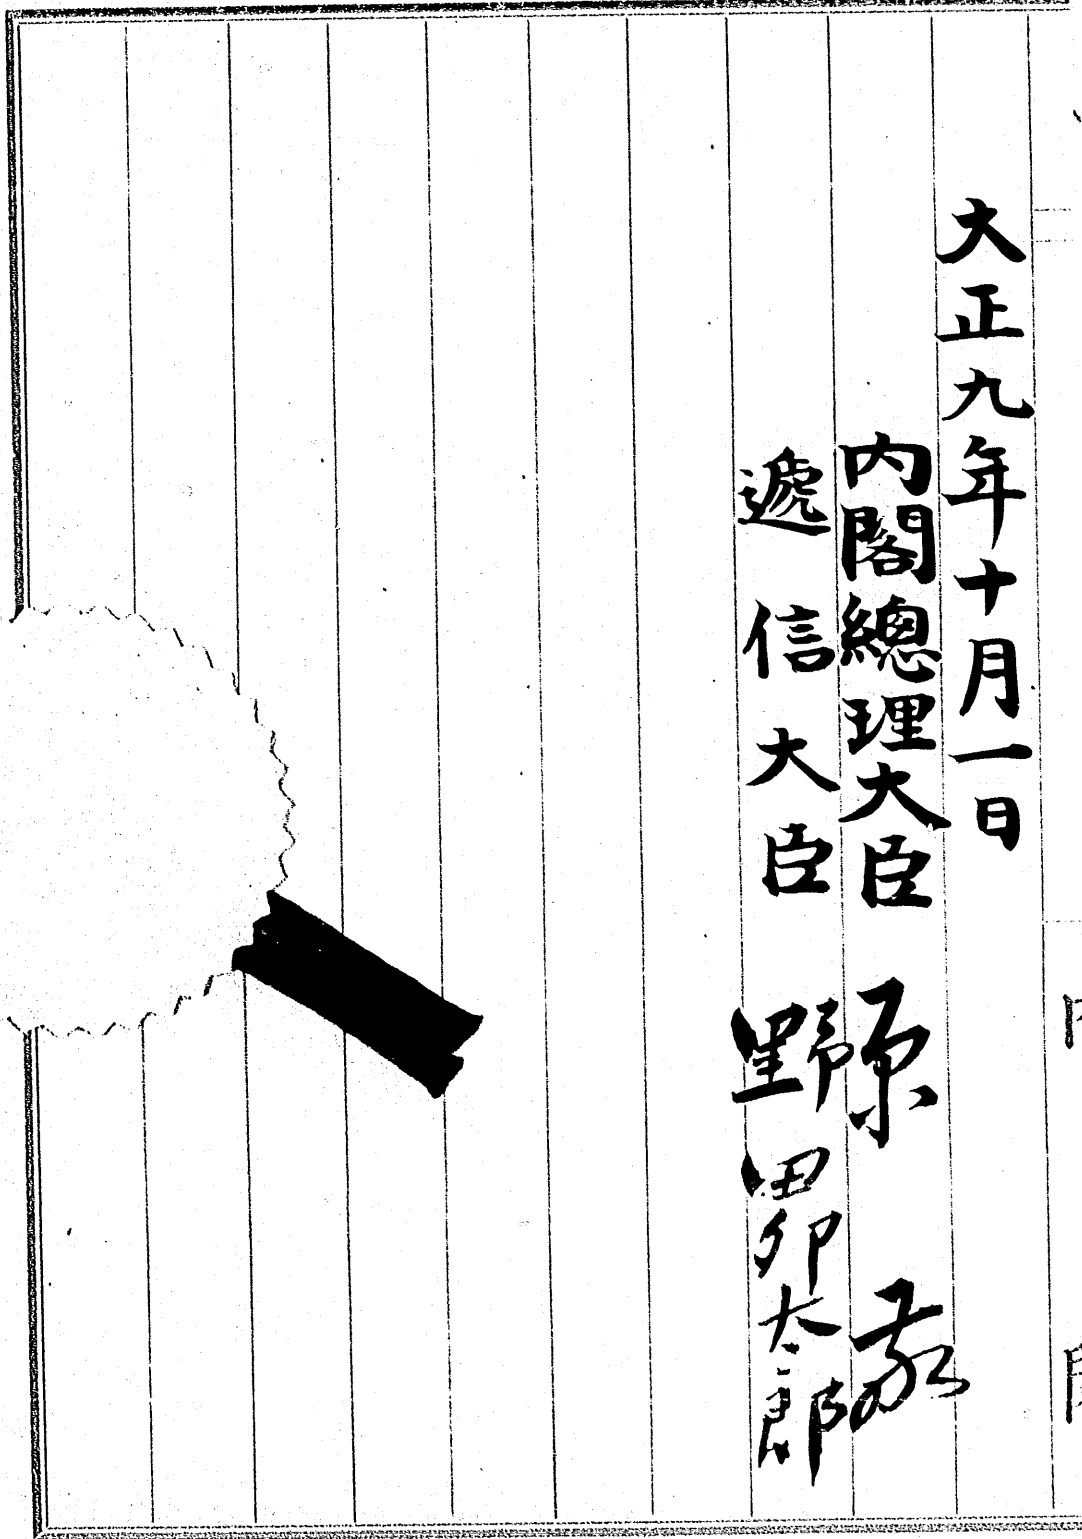 大正九年十月一日
内閣總理大臣 原 敬
遞信大臣 野田卯太郎